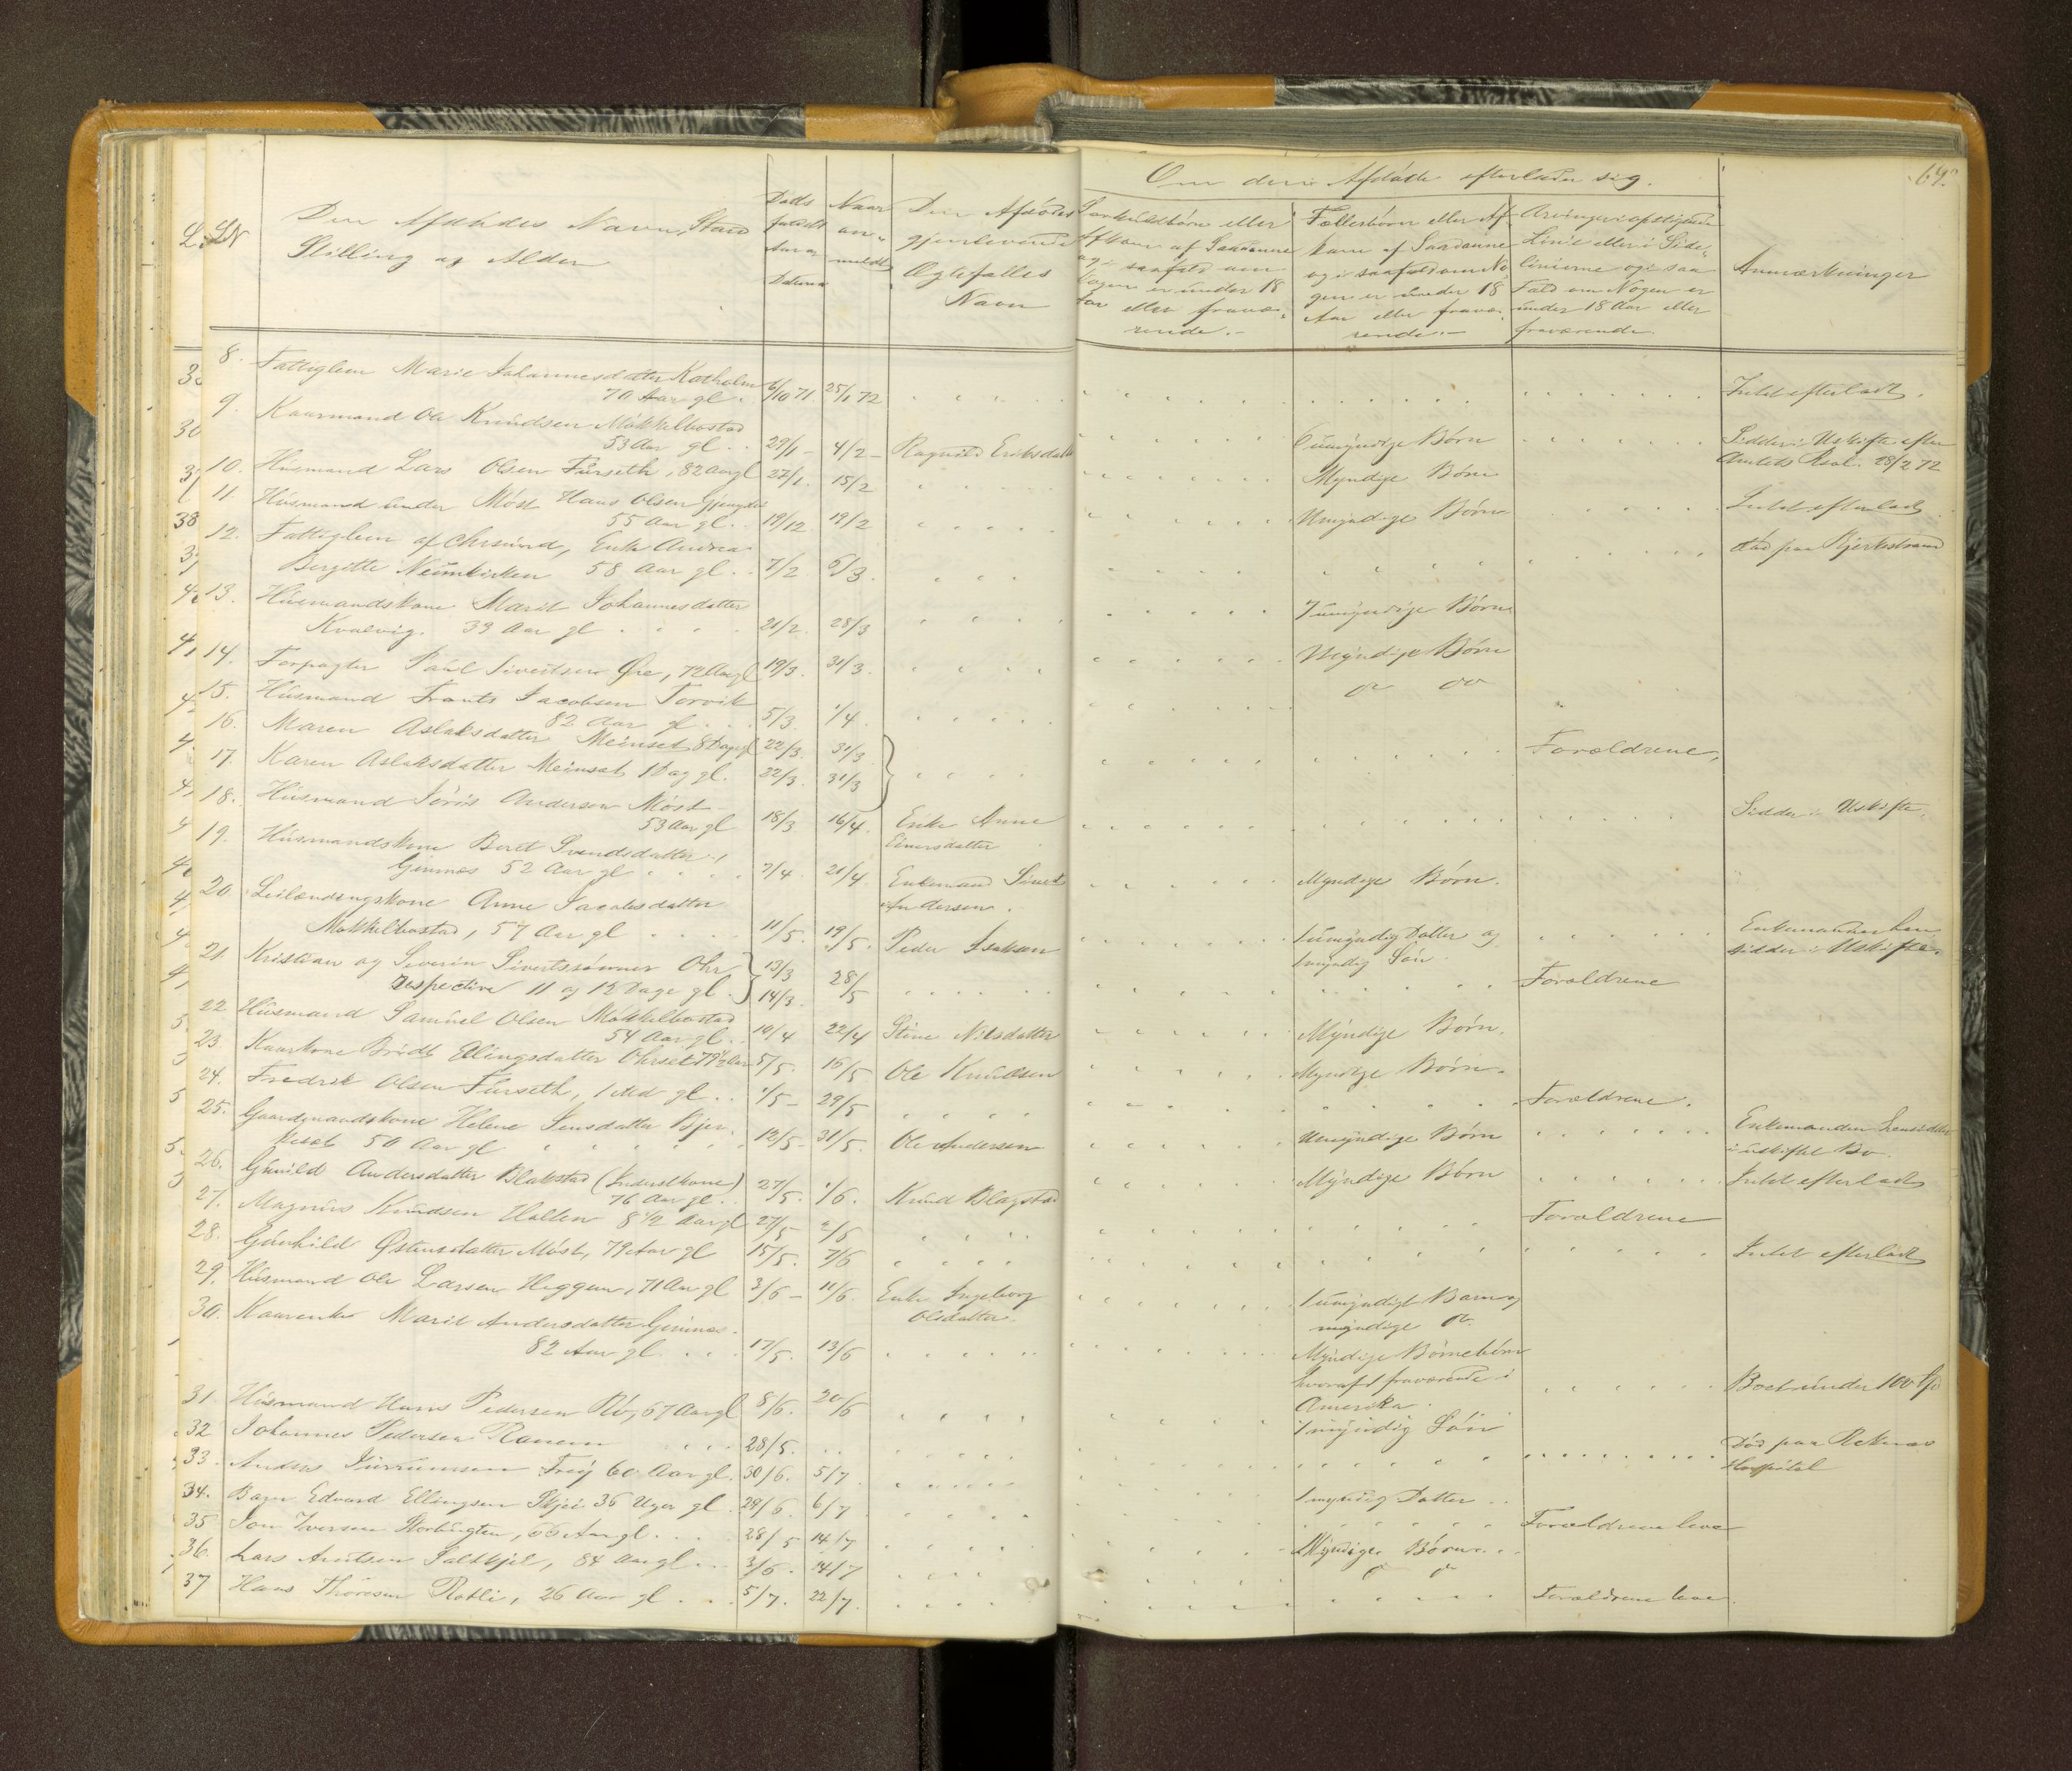 64.
Om den Afdøde efterlader sig.
LN
Den Afdødes Navn, Stand
Stilling og Alder
Døds
faldets
Aar og
Datum
Naar
an-
meldt
Den Afdødes
gjenlevende
Ægtefælles
Navn
Særkuldsbørn eller
Afkom af Saadanne
og i saafald om
Nogen er under 18
Aar eller fravæ-
rende.-
Fællesbørn eller Af-
kom af Saadanne
og i saafald om No-
gen er under 18
Aar eller fravæ-
rende.-
Arvinger i opstigende
Linie eller i Side-
linierne og i saa
Fald om Nogen er
under 18 Aar eller
fraværende.
Anmærkninger
8. Fattiglem Marie Johannesdatter Katholm
70 Aar gl. 6/10 71. 25/1 72 Intet efterladt.
9. Kaarmand Ole Knudsen Mækkelbostad
53 Aar gl. 29/1 - 4/2 - Ragnild Eriksdatter 6 umyndige Børn Sidder i Uskifte efter
Amtets Resol. 28/2 72
10. Husmand Lars Olsen Furseth, 82 Aar gl 27/1. 15/2 Myndige Børn
11. Husmand under Møst Hans Olsen
55 Aar gl. 19/12. 19/2 Umyndige Børn Intet efterladt
12. Fattiglem af Chrsund, Enke Andrea
Bergitte Neumkirken 58 Aar gl. 7/2 6/3. død paa Bjerkestrand
13. Husmandskone Marit Johannesdatter
Kvalvig. 39 Aar gl 21/2. 28/3 7 umyndige Børn
14. Forpagter Paul Sivertsen Øre, 72 Aar gl 19/3. 31/3. Myndige Børn
15. Husmand Frants Jacobsen Torvik
82 Aar gl 5/3. 1/4. do do
16. Maren Aslaksdatter Meinset 8 Dage gl 22/3. 31/3 Forældrene,
17. Karen Aslaksdatter Meinset 1 Dag gl. 22/3. 31/3
18. Husmand Jøris Andersen Møst
53 Aar gl 18/3 16/4. Enke Anne
Einersdatter Sidder i Uskifte.
19. Husmandskone Beret Svendsdatter
Gimnæs 52 Aar gl 7/4. 21/4. Enkemand Sivert
Andersen. Myndige Børn.
20 Leilændingskone Anne Jacobsdatter
Mækkelbostad, 57 Aar gl 11/5. 19/5. Peder Isaksen 1 umyndig Datter og
1 myndig Søn. Enkemanden hen
sidder i Uskifte.
21 Kristian og Severin Sivertssønner Ohr
respective 11 og 12 Dage gl. 13/3 14/3. 28/5 Forældrene
22 Husmand Samuel Olsen Mækkelbostad
54 Aar gl. 10/4 22/4 Stine Nilsdatter Myndige Børn.
23. Kaarkone Brødt Ellingsdatter Ohrset 79 1/2 Aar 5/5. 16/5 Ole Knudsen Myndige Børn.
24. Fredrik Olsen Furseth, 1 Md gl. 1/5 - 29/5 Forældrene.
25. Gaardmandskone Helene Jensdatter Bjer-
keset 50 Aar gl 12/5 - 31/5. Ole Andersen Umyndige Børn Enkemanden hensidder
i uskiftet Bo.
26. Gunild Andersdatter Blakstad (Inderstkone)
76 Aar gl. 27/5. 1/6. Knud Blagstad Myndige Børn Intet efterladt
27. Magnus Knudsen Holten 8 1/2 Aar gl 27/5 2/6 Forældrene
28. Gunhild Østensdatter Møst, 79 Aar gl 15/5. 7/6 Intet efterladt
29. Husmand Ole Larsen Heggem, 71 Aar gl 3/6 - 11/6. Enke Ingeborg
Olsdatter. 1 umyndigt Barn og
myndige do.
30. Kaarenke Marit Andersdatter Gimnæs.
82 Aar gl. 17/5. 13/6 Myndige Børnebørn
hvoraf 1 fraværende i
Amerika. Boet under 100 Spd
31. Husmand Hans Pedersen Rø, 67 Aar gl 8/6. 20/6 1 myndig Søn
32 Johannes Pedersen Ranem 28/5. Død paa Reknæs
Hospital
33. Anders Frey 60 Aar gl. 30/6. 5/7 1 myndig Datter
34. Barn Edvard Ellingsen Skjei 36 Uger gl 29/6. 6/7 Forældrene leve
35 Jon Iversen, 66 Aar gl. 28/5 14/7 Myndige Børn
36. Lars Arntsen Saltkjel, 84 Aar gl. 3/6. 14/7 do do
37 Hans Thoresen Røtli, 26 Aar gl 5/7. 22/7. Forældrene leve.